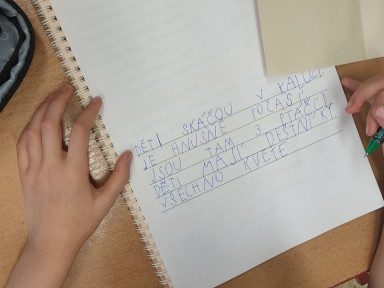 DĚTI SKÁČOU V KALUŽI
JE HNUSNÉ POČASÍ
JSOU TAM 3 PTÁCI
DĚTI MAJÍ DEŠTNÍKY
VŠECHNO KVETE